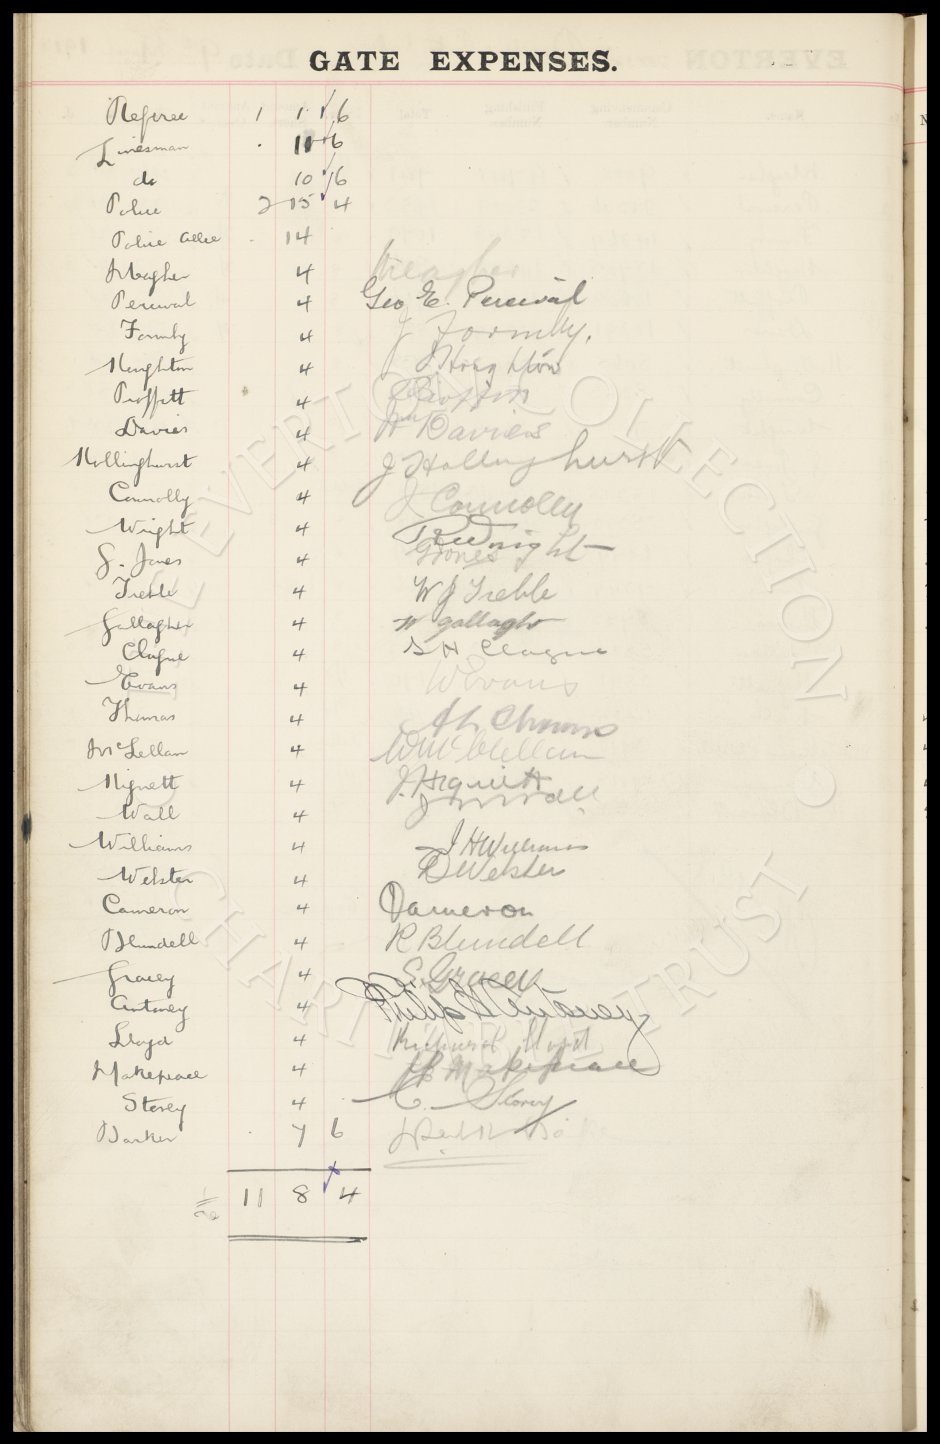 GATE EXPENSES.
Referee 1 1 6
Linesman . 11 6
do 10 6
Police 2 15 4
Police . 14
Meagher 4 Meagher
Percival 4 Geo E. Percival
Formby 4 J Formby.
Houghton 4 J Houghton
Proffitt 4
Davies 4 Wm Davies
Hollinghurst 4 J Hollinghurst
Connolly 4 J Connolly
Wright 4 Wright
G. Jones 4 G Jones
Treble 4 W J Treble
Gallagher 4 W gallagher
Clague 4 S H Clague
Evans 4 W Evans
Thomas 4
McLellan 4 W McClellan
Hignett 4 J. Hignett
Wall 4 J Wall
Williams 4 J H Williams
Webster 4 Webster
Cameron 4 Cameron
Blundell 4 R Blundell
Gracey 4 E. Gracey
Antoney 4 Philip Antoney
Lloyd 4 Richard Lloyd
Makepeace 4 Makepeace
Storey 4 C. Storey
Barker . 7 6
11 8 4
THE EVERTON COLLECTION CHARITABLE TRUST ©